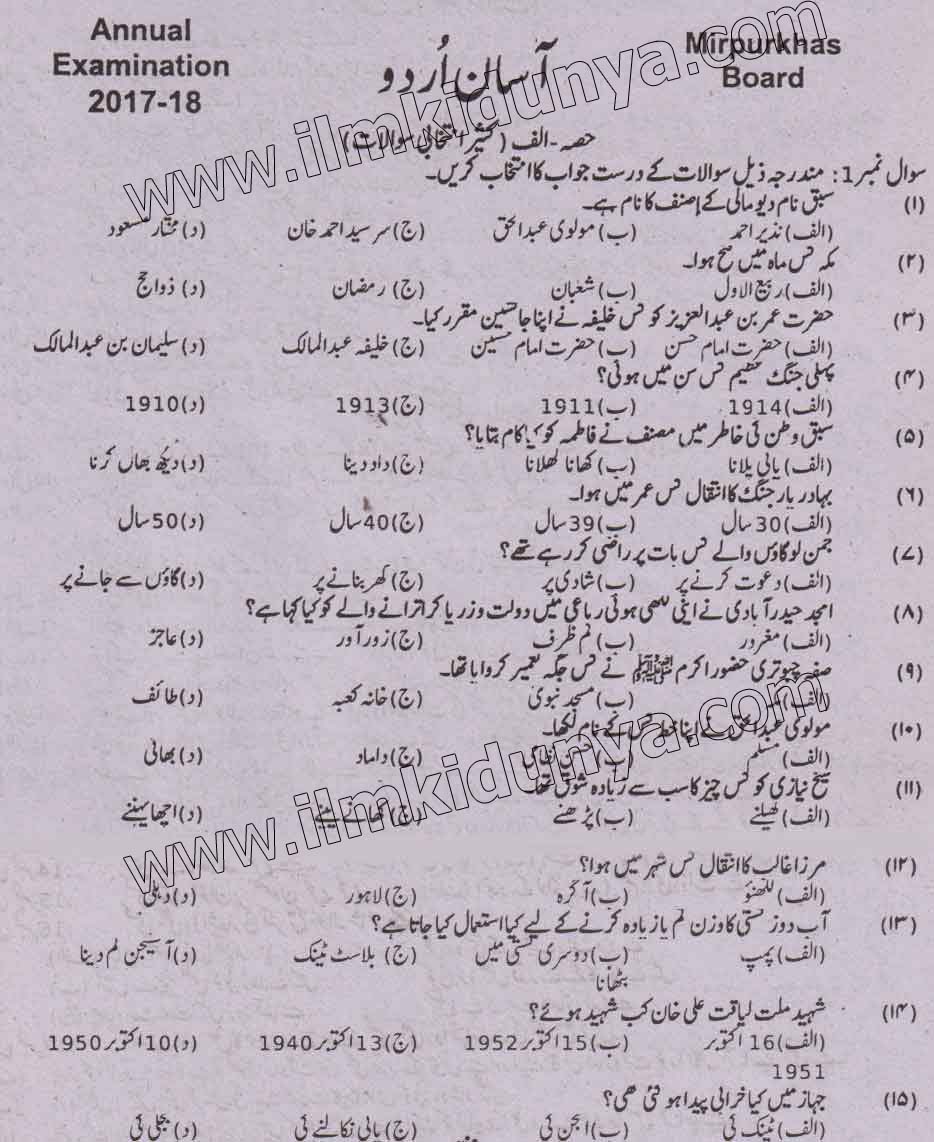 Annual Examination 2017-18
آسان اُردو
Mirpurkhas Board
حصہ-الف (کثیر انتخابی سوالات)
سوال نمبر1: مندرجہ ذیل سوالات کے درست جواب کا انتخاب کریں۔
(۱) سبق نام دیو مالی کے مصنف کا نام ہے۔
(الف) نذیر احمد (ب) مولوی عبدالحق (ج) سر سید احمد خان (د) مختار مسعود
(۲) مکہ کس ماہ میں فتح ہوا۔
(الف) ربیع الاول (ب) شعبان (ج) رمضان (د) ذوالحج
(۳) حضرت عمر بن عبدالعزیز کو کس خلیفہ نے اپنا جانشین مقرر کیا۔
(الف) حضرت امام حسن (ب) حضرت امام حسین (ج) خلیفہ عبدالمالک (د) سلیمان بن عبدالمالک
(۴) پہلی جنگ عظیم کس سن میں ہوئی؟
(الف) 1914 (ب) 1911 (ج) 1913 (د) 1910
(۵) سبق وطن کی خاطر میں مصنف نے فاطمہ کو کیا کام بتایا؟
(الف) پانی پلانا (ب) کھانا کھلانا (ج) داد دینا (د) دیکھ بھال کرنا
(۶) بہادر یار جنگ کا انتقال کس عمر میں ہوا۔
(الف) 30 سال (ب) 39 سال (ج) 40 سال (د) 50 سال
(۷) جمن کو گاؤں والے کس بات پر راضی کر رہے تھے؟
(الف) دعوت کرنے پر (ب) شادی پر (ج) گھر بنانے پر (د) گاؤں سے جانے پر
(۸) امجد حیدر آبادی نے اپنی لکھی ہوئی رباعی میں دولت و زر پا کر اترانے والے کو کیا کہا ہے؟
(الف) مغرور (ب) کم ظرف (ج) زور آور (د) عاجز
(۹) صفہ چبوتری حضور اکرم ﷺ نے کس جگہ تعمیر کروایا تھا۔
(الف) (ب) مسجد نبوی (ج) خانہ کعبہ (د) طائف
(۱۰) مولوی عبدالحق نے اپنا خط کس کے نام لکھا۔
(الف) مسلم (ب) حسن نظامی (ج) داماد (د) بھائی
(۱۱) شیخ نیازی کو کس چیز کا سب سے زیادہ شوق تھا
(الف) کھیلنے (ب) پڑھنے (ج) کھانے پینے (د) اچھا پہننے
(۱۲) مرزا غالب کا انتقال کس شہر میں ہوا؟
(الف) لکھنؤ (ب) آگرہ (ج) لاہور (د) دہلی
(۱۳) آب دوز کشتی کا وزن کم یا زیادہ کرنے کے لیے کیا استعمال کیا جاتا ہے؟
(الف) پمپ (ب) دوسری کشتی میں بٹھانا (ج) بلاسٹ ٹینک (د) آکسیجن کم دینا
(۱۴) شہید ملت لیاقت علی خان کب شہید ہوئے؟
(الف) 16 اکتوبر 1951 (ب) 15 اکتوبر 1952 (ج) 13 اکتوبر 1940 (د) 10 اکتوبر 1950
(۱۵) جہاز میں کیا خرابی پیدا ہو گئی تھی؟
(الف) ٹینک کی (ب) انجن کی (ج) پانی نکالنے کی (د) بجلی کی
www.ilmkidunya.com
www.ilmkidunya.com